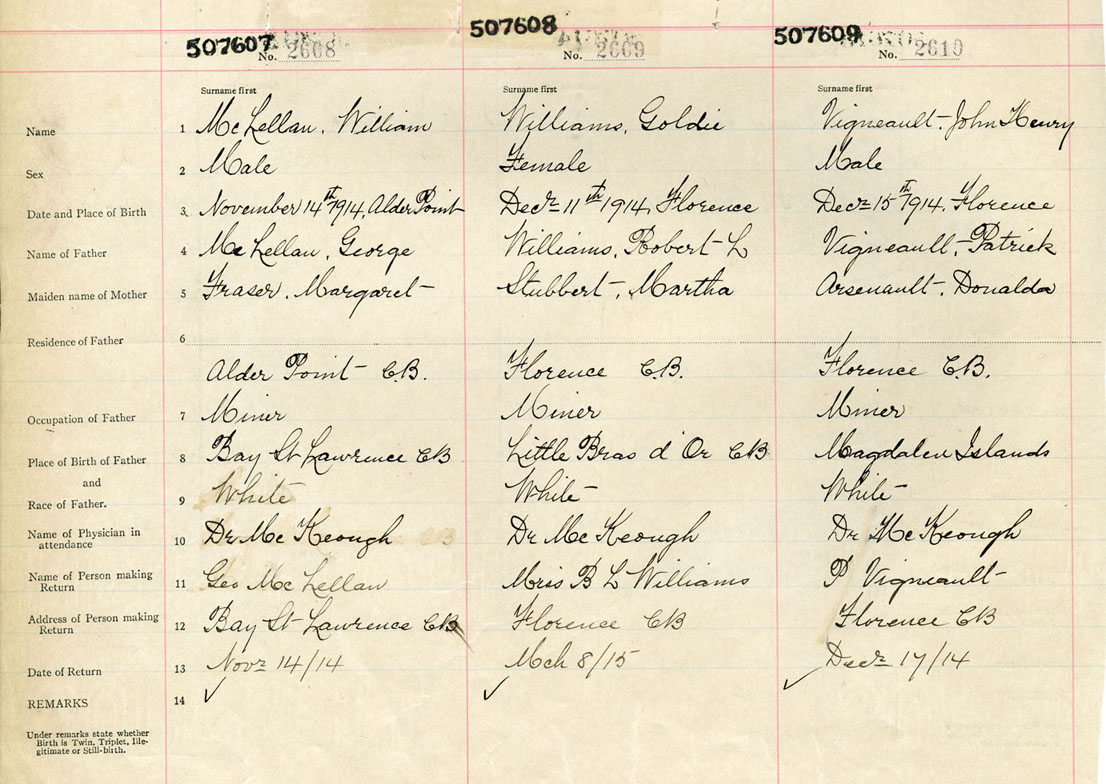 507607 507608 507609
No. 2608 No. 2609 No. 2610
Surname first Surname first Surname first
Name 1 McLellan, William Williams, Goldie Vigneault-John Henry
Sex 2 Male Female Male
Date and Place of Birth 3 November 14th 1914, Alder Point Decr 11th 1914, Florence Decr 15th 1914, Florence
Name of Father 4 McLellan, George Williams, Robert L Vigneault, Patrick
Maiden name of Mother 5 Fraser, Margaret Stubbert, Martha Arsenault, Donalda
Residence of Father 6
Alder Point C.B. Florence C.B. Florence C.B.
Occupation of Father 7 Miner Miner Miner
Place of Birth of Father 8 Bay St Lawrence CB Little Bras d'Or CB Magdalen Islands
and
Race of Father. 9 White White White
Name of Physician in
attendance 10 Dr McKeough Dr McKeough Dr McKeough
Name of Person making
Return 11 Geo McLellan Mris B L Williams P Vigneault
Address of Person making
Return 12 Bay St Lawrence CB Florence CB Florence CB
Date of Return 13 Novr 14/14 Mch 8/15 Decr 17/14
REMARKS 14 ✓ ✓ ✓
Under remarks state whether
Birth is Twin, Triplet, Ille-
gitimate or Still-birth.